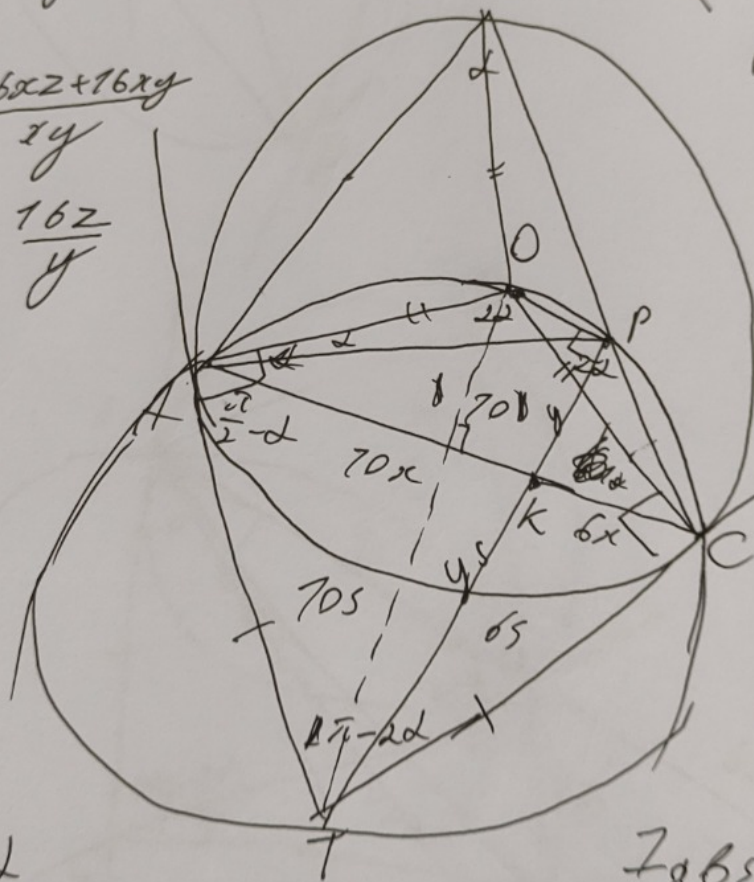 6xz+16xy
xy
16z
y
α
O
2α
P
α
2α
A
π/2-α
10
y
10x
K
6x
C
y
s
10s
6s
π-2α
T